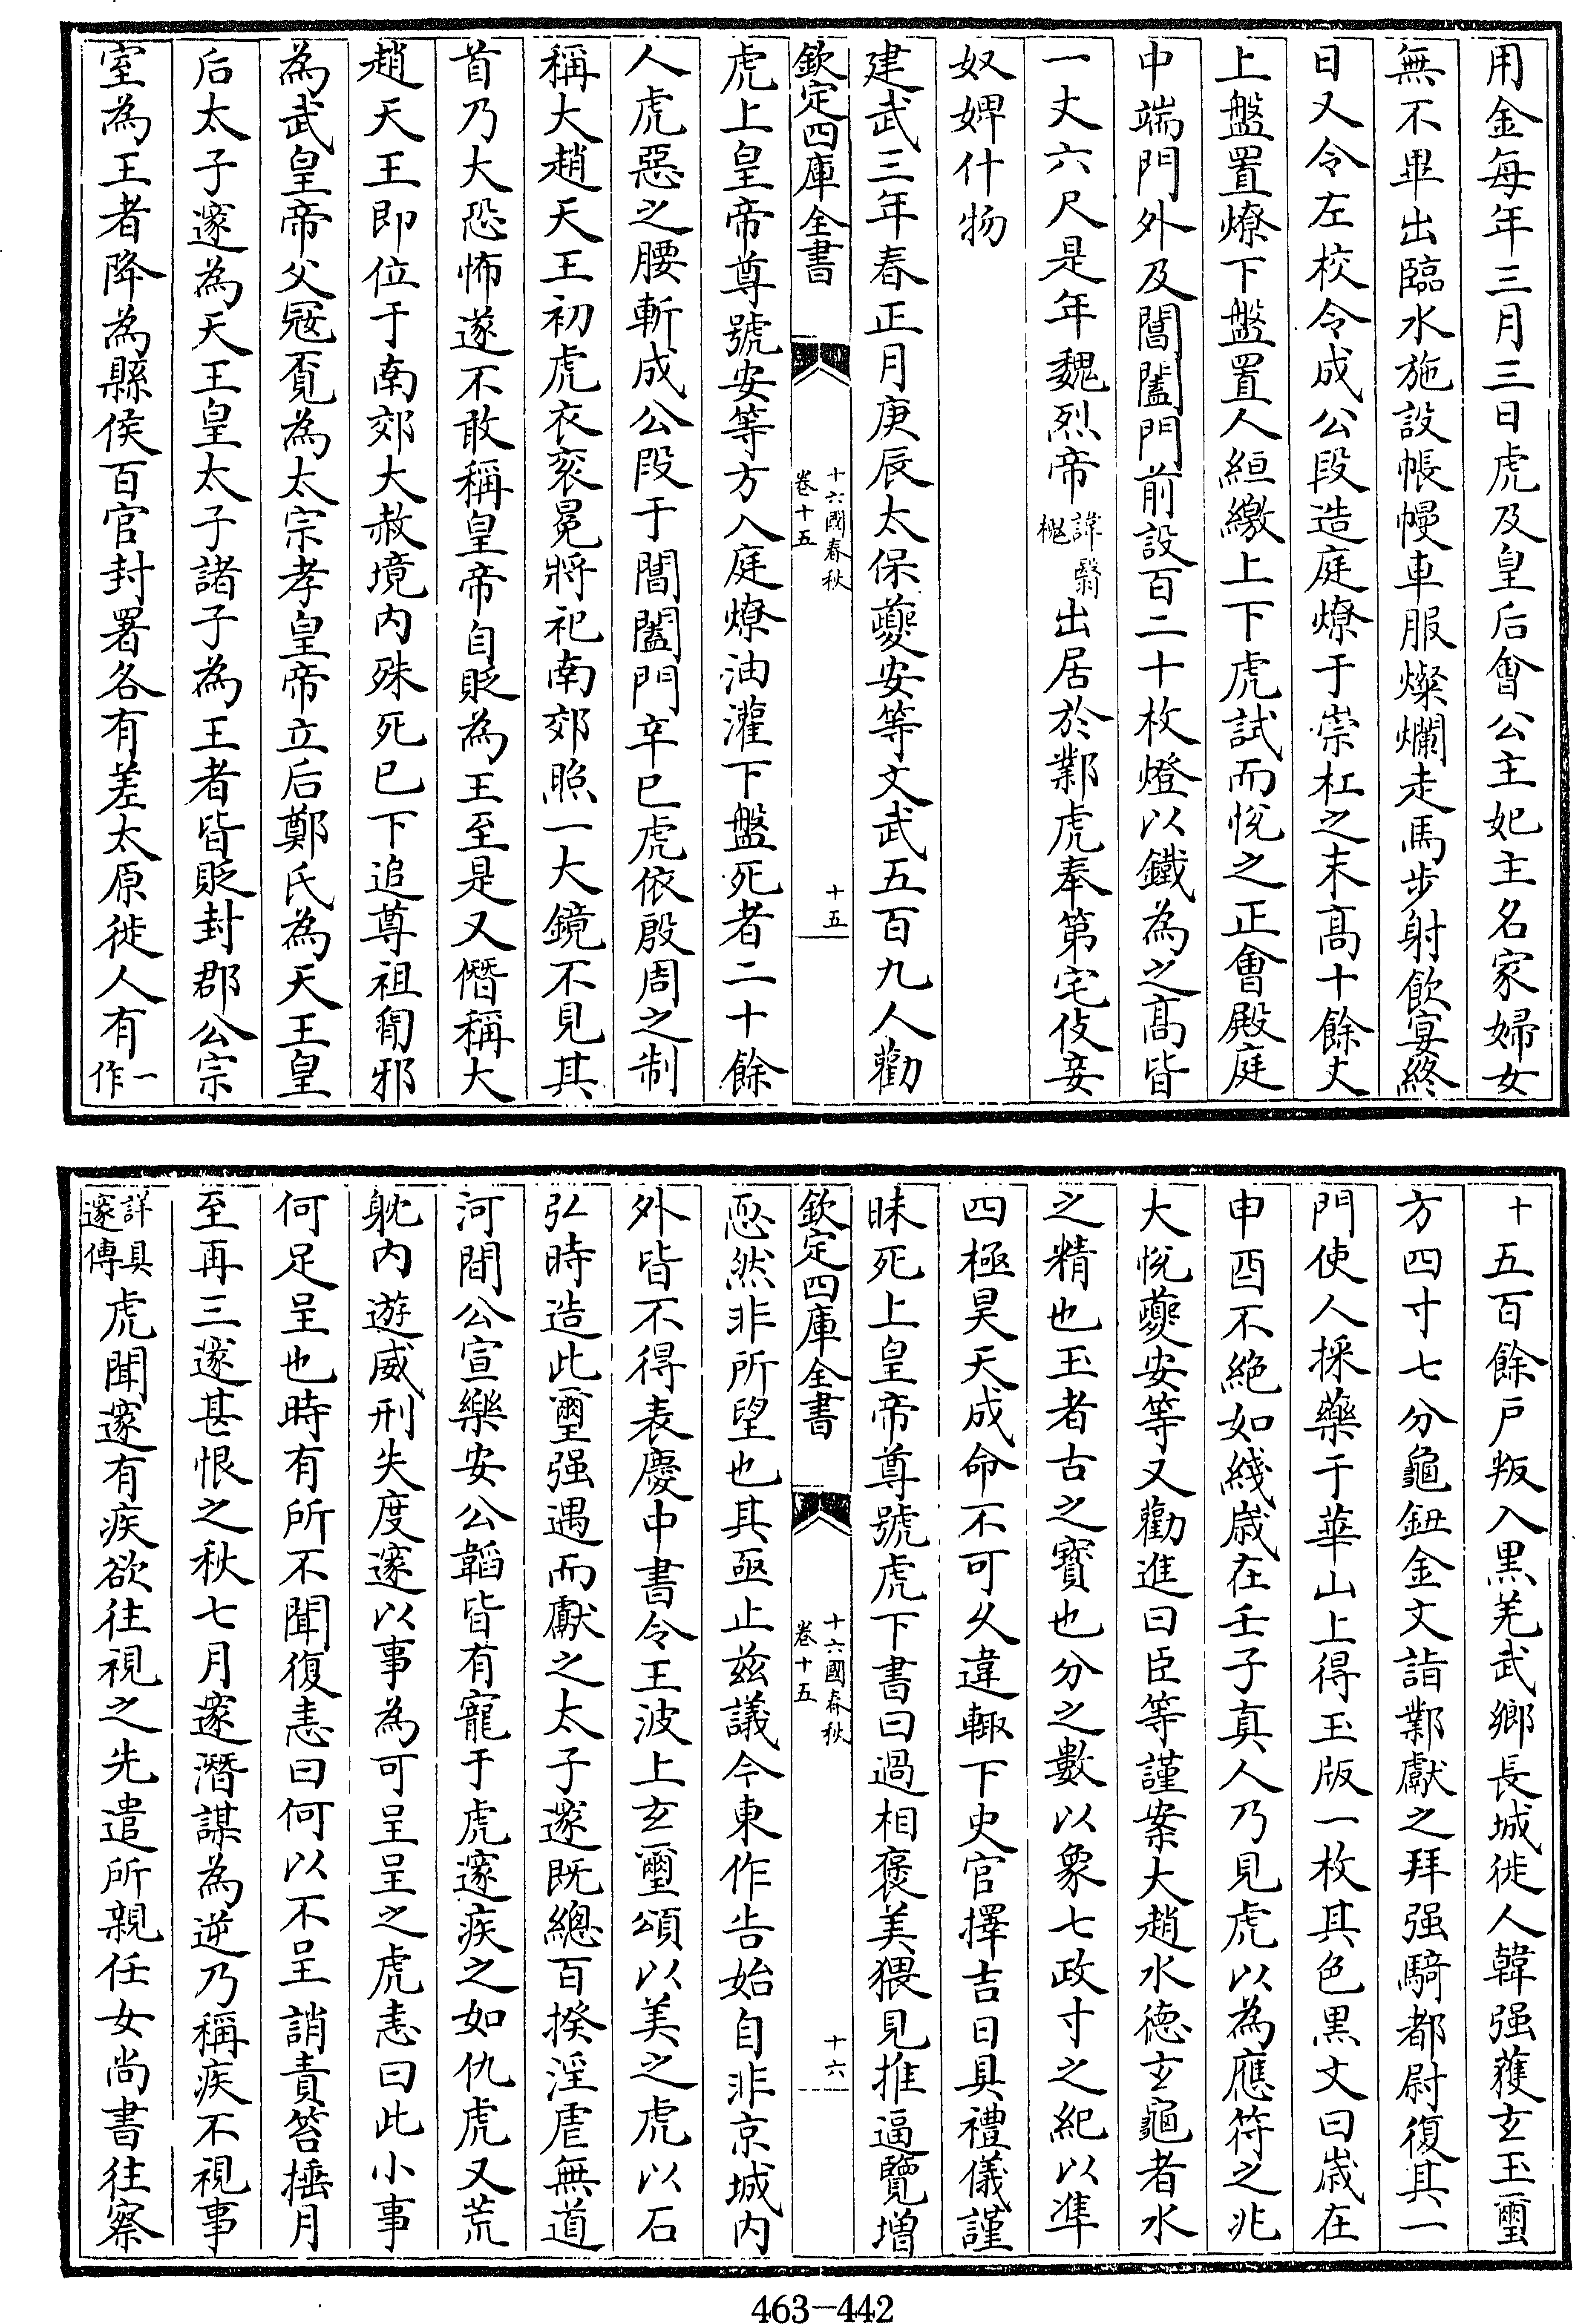 用金每年三月三日虎及皇后會公主妃主名家婦女
無不畢出臨水施設帳幔車服燦爛走馬步射飲宴終
日又令左校令成公段造庭燎于崇杠之末高十餘丈
上盤置燎下盤置人絙繳上下虎試而悅之正會殿庭
中端門外及閶闔門前設百二十枚燈以鐵為之高皆
一丈六尺是年魏烈帝諱翳槐出居於鄴虎奉第宅伎妾
奴婢什物
建武三年春正月庚辰太保夔安等文武五百九人勸
欽定四庫全書
十六國春秋
卷十五
十五
虎上皇帝尊號安等方入庭燎油灌下盤死者二十餘
人虎惡之腰斬成公段于閶闔門辛巳虎依殷周之制
稱大趙天王初虎衣衮冕將祀南郊照一大鏡不見其
首乃大恐怖遂不敢稱皇帝自貶為王至是又僭稱大
趙天王即位于南郊大赦境内殊死已下追尊祖㔨邪
為武皇帝父宼覔為太宗孝皇帝立后鄭氏為天王皇
后太子邃為天王皇太子諸子為王者皆貶封郡公宗
室為王者降為縣侯百官封署各有差太原徙人有一作
十五百餘戶叛入黑羌武鄉長城徙人韓强獲玄玉璽
方四寸七分龜鈕金文詣鄴獻之拜强騎都尉復其一
門使人採藥于華山上得玉版一枚其色黑文曰歲在
申酉不絶如綫歲在壬子真人乃見虎以為應符之兆
大悅夔安等又勸進曰臣等謹案大趙水德玄龜者水
之精也玉者古之寳也分之數以象七政寸之紀以準
四極昊天成命不可久違輙下史官擇吉日具禮儀謹
昧死上皇帝尊號虎下書曰過相褒美猥見推逼覽增
欽定四庫全書
十六國春秋
卷十五
十六
恧然非所望也其亟止兹議今東作告始自非京城内
外皆不得表慶中書令王波上玄璽頌以美之虎以石
弘時造此璽强遇而獻之太子邃既總百揆淫虐無道
河間公宣樂安公韜皆有寵于虎邃疾之如仇虎又荒
躭内遊威刑失度邃以事為可呈呈之虎恚曰此小事
何足呈也時有所不聞復恚曰何以不呈誚責笞捶月
至再三邃甚恨之秋七月邃潛謀為逆乃稱疾不視事
詳具邃傳虎聞邃有疾欲往視之先遣所親任女尚書往察
463－442